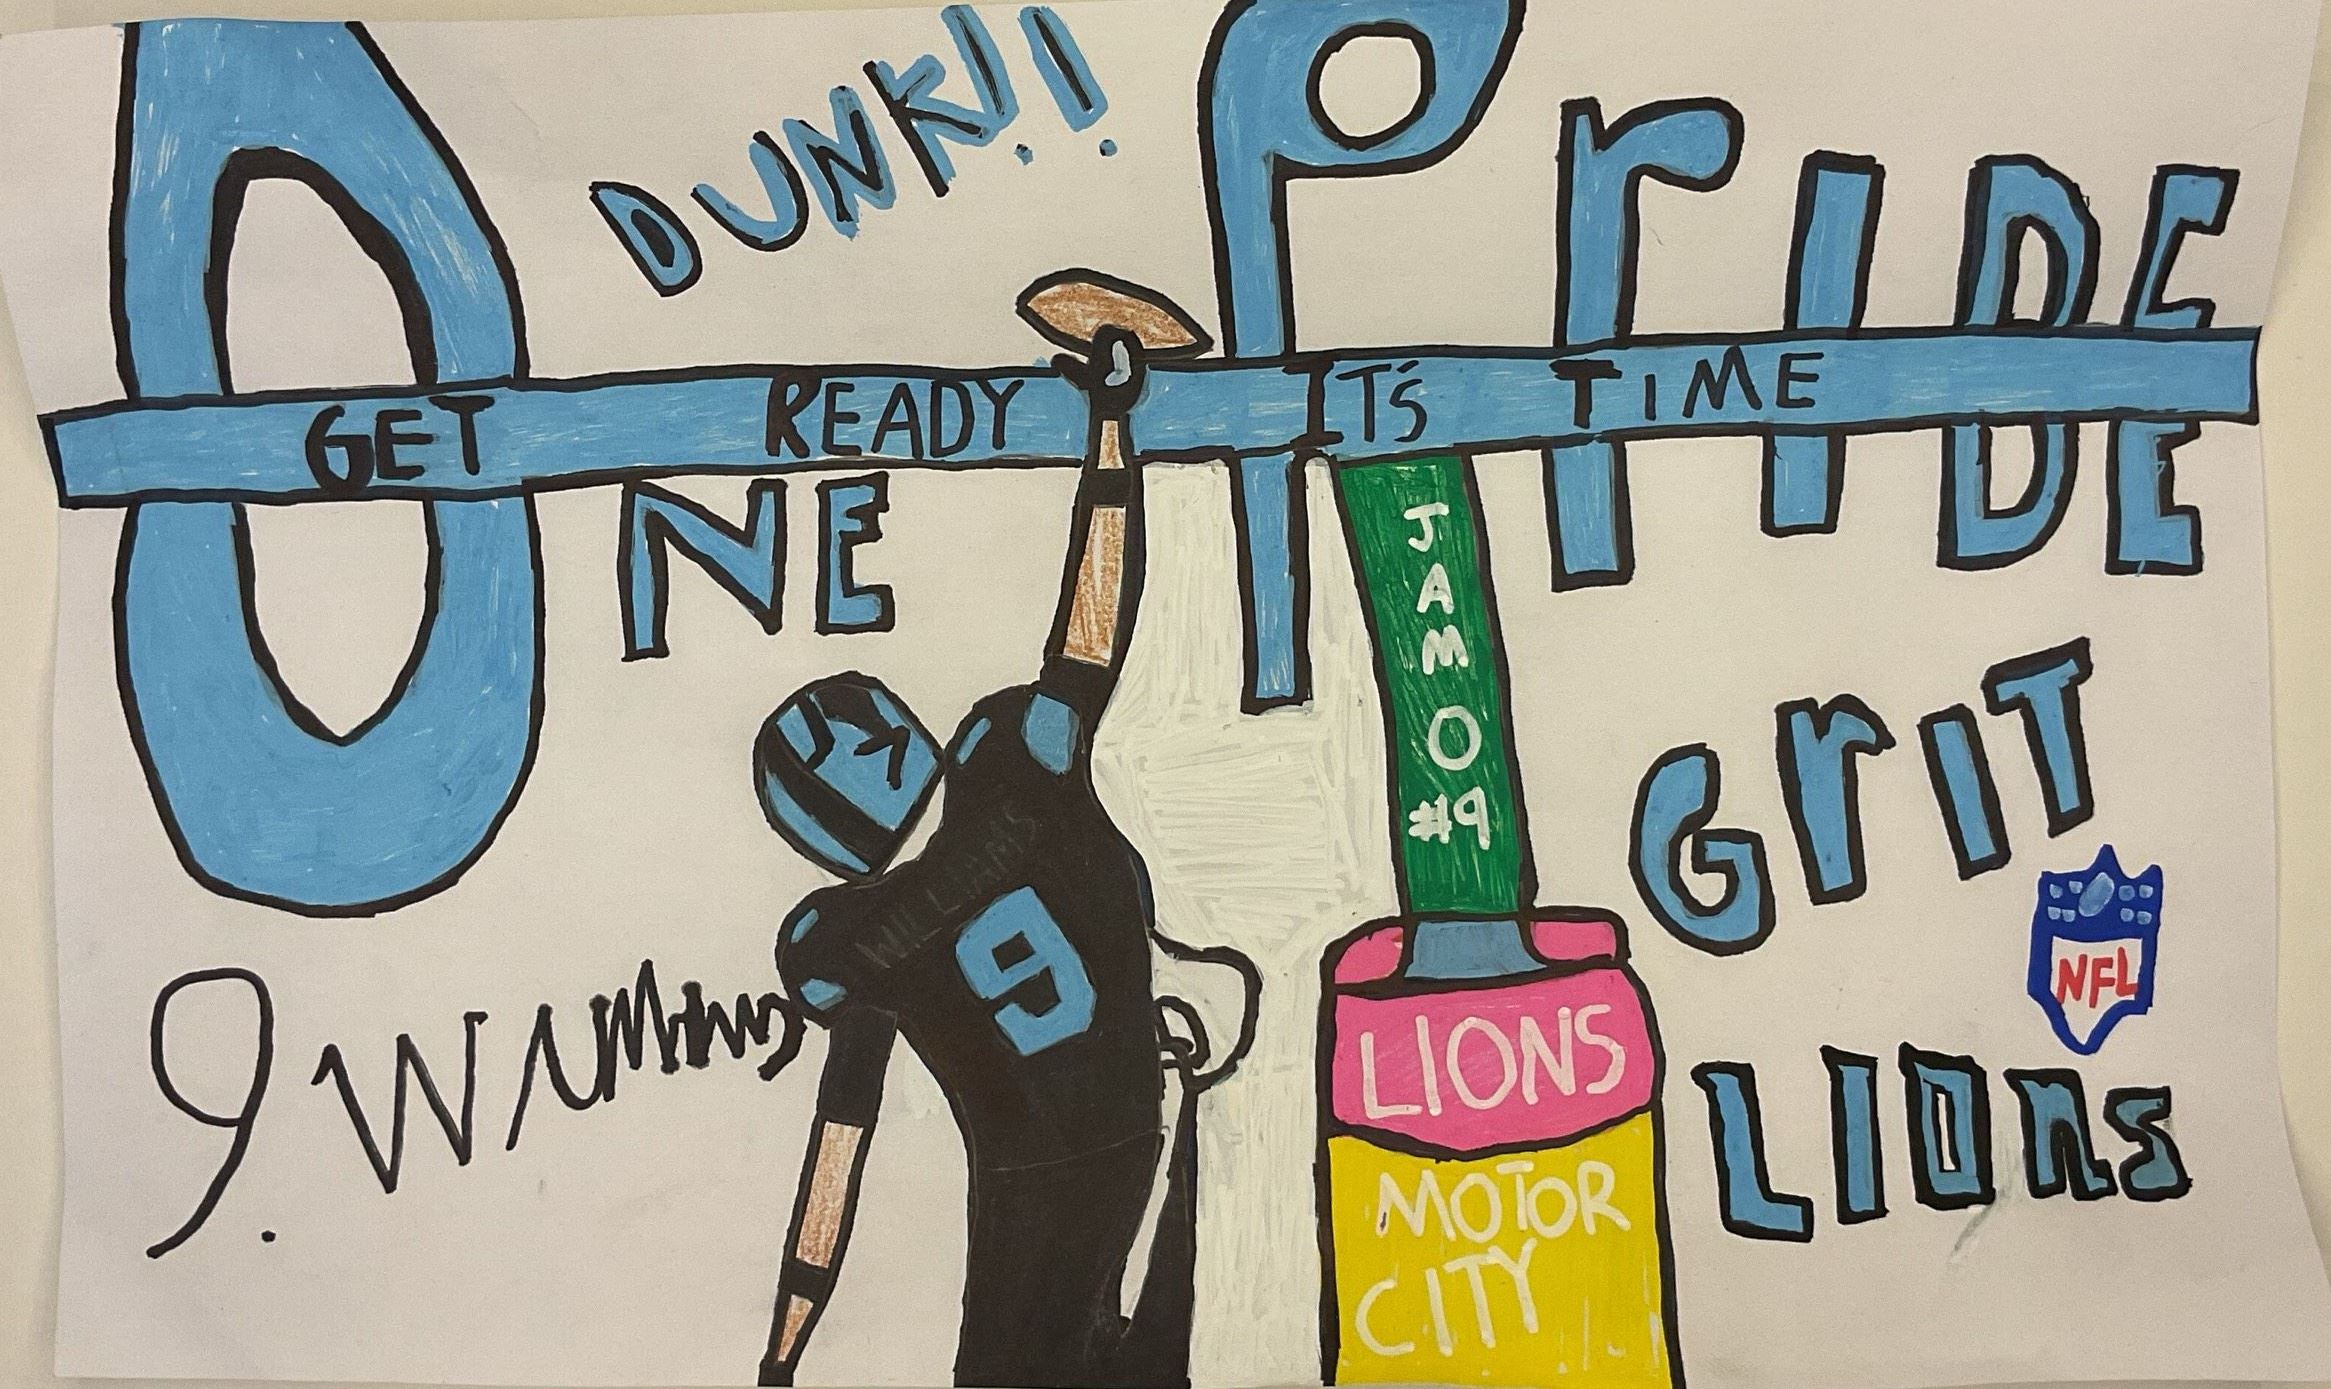 DUNK!!
ONE PrIDE
GET READY IT'S TIME
JAMO
#9
GrIT
WILLIAMS
9
NFL
LIONS
MOTOR
CITY
LIOnS